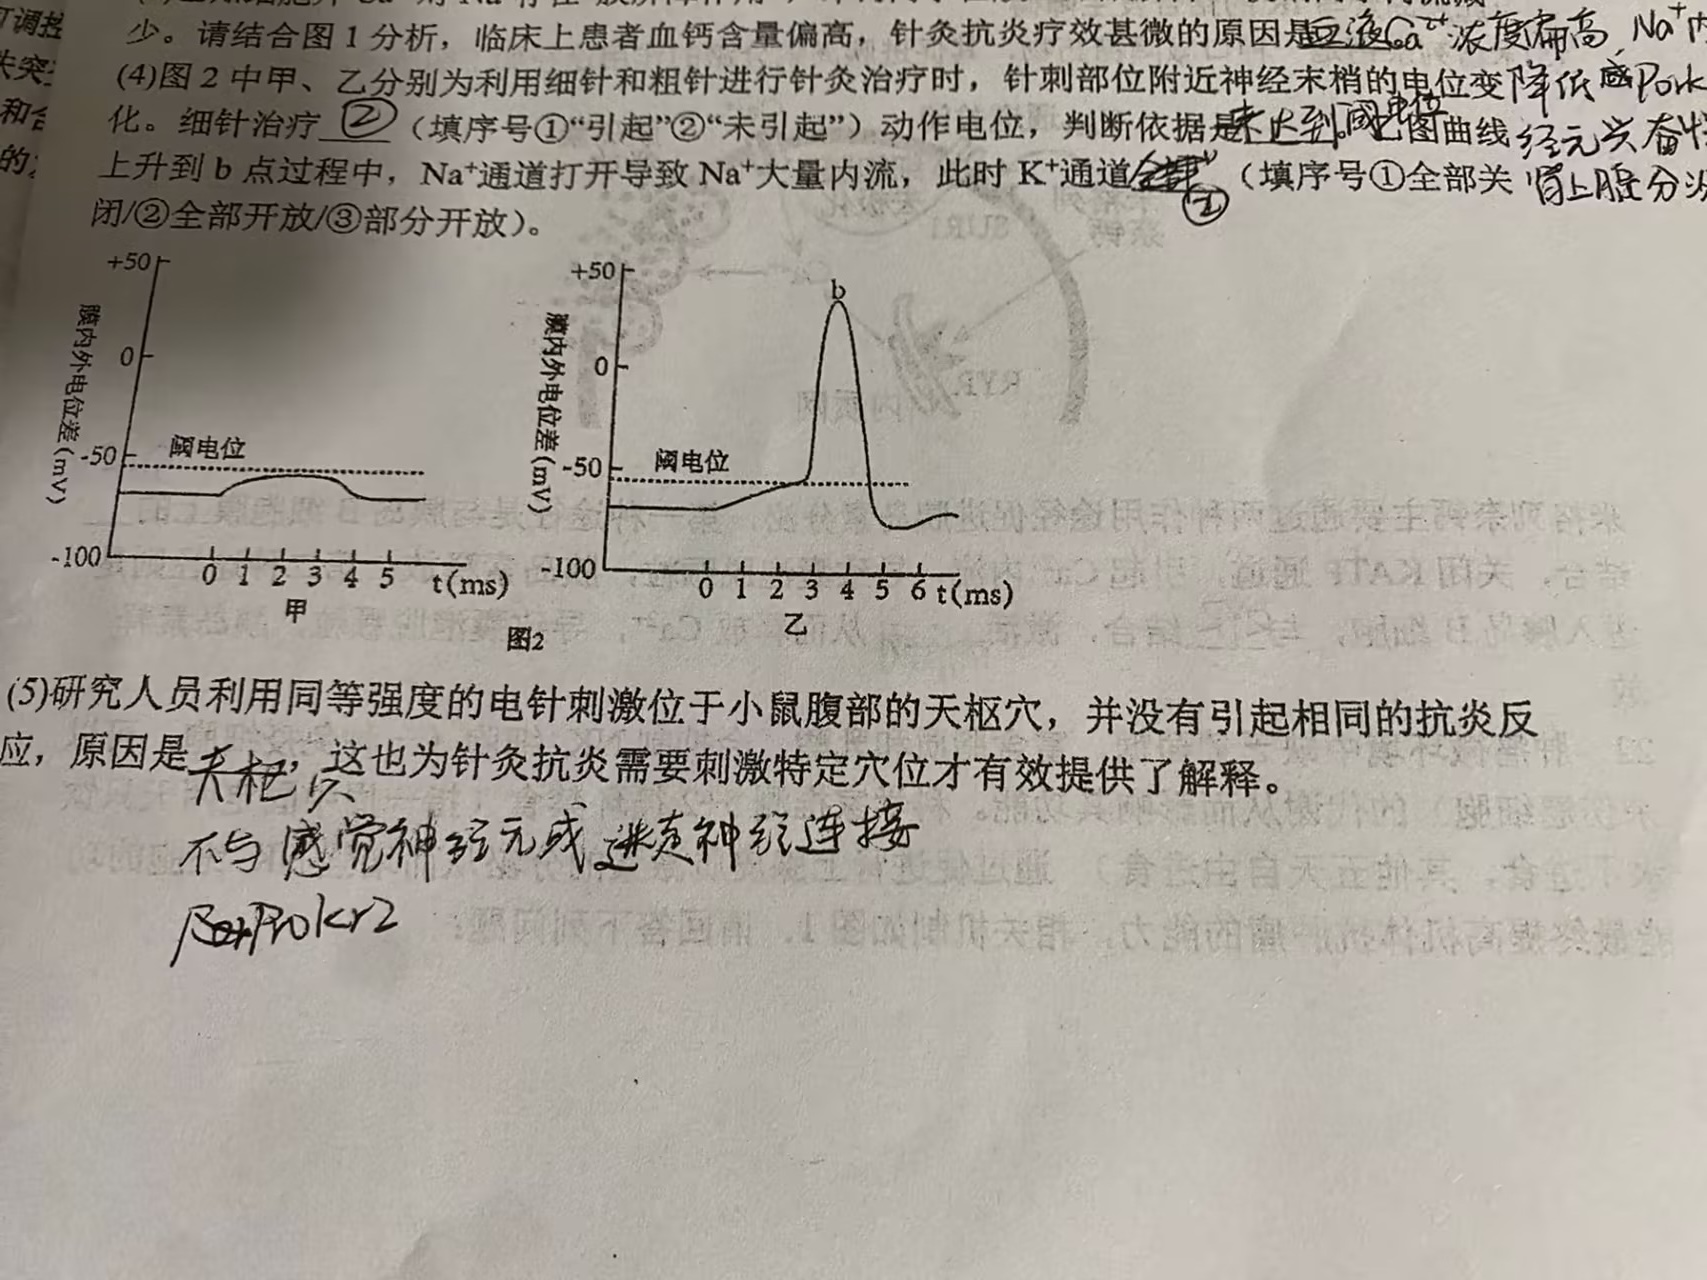 少。请结合图1分析，临床上患者血钙含量偏高，针灸抗炎疗效甚微的原因是血液Ca²⁺浓度偏高，Na⁺内
(4)图2中甲、乙分别为利用细针和粗针进行针灸治疗时，针刺部位附近神经末梢的电位变 降低感Pork
化。细针治疗②（填序号①“引起”②“未引起”）动作电位，判断依据是未达到阈电位。乙图曲线 经元兴奋性
上升到b点过程中，Na⁺通道打开导致Na⁺大量内流，此时K⁺通道②（填序号①全部关 肾上腺分泌
闭/②全部开放/③部分开放）。
+50
0
-50
-100
膜内外电位差(mV)
阈电位
0 1 2 3 4 5 t(ms)
甲
+50
0
-50
-100
膜内外电位差(mV)
b
阈电位
0 1 2 3 4 5 6 t(ms)
乙
图2
(5)研究人员利用同等强度的电针刺激位于小鼠腹部的天枢穴，并没有引起相同的抗炎反
应，原因是天枢穴，这也为针灸抗炎需要刺激特定穴位才有效提供了解释。
不与感觉神经元或迷走神经连接
Prokr2